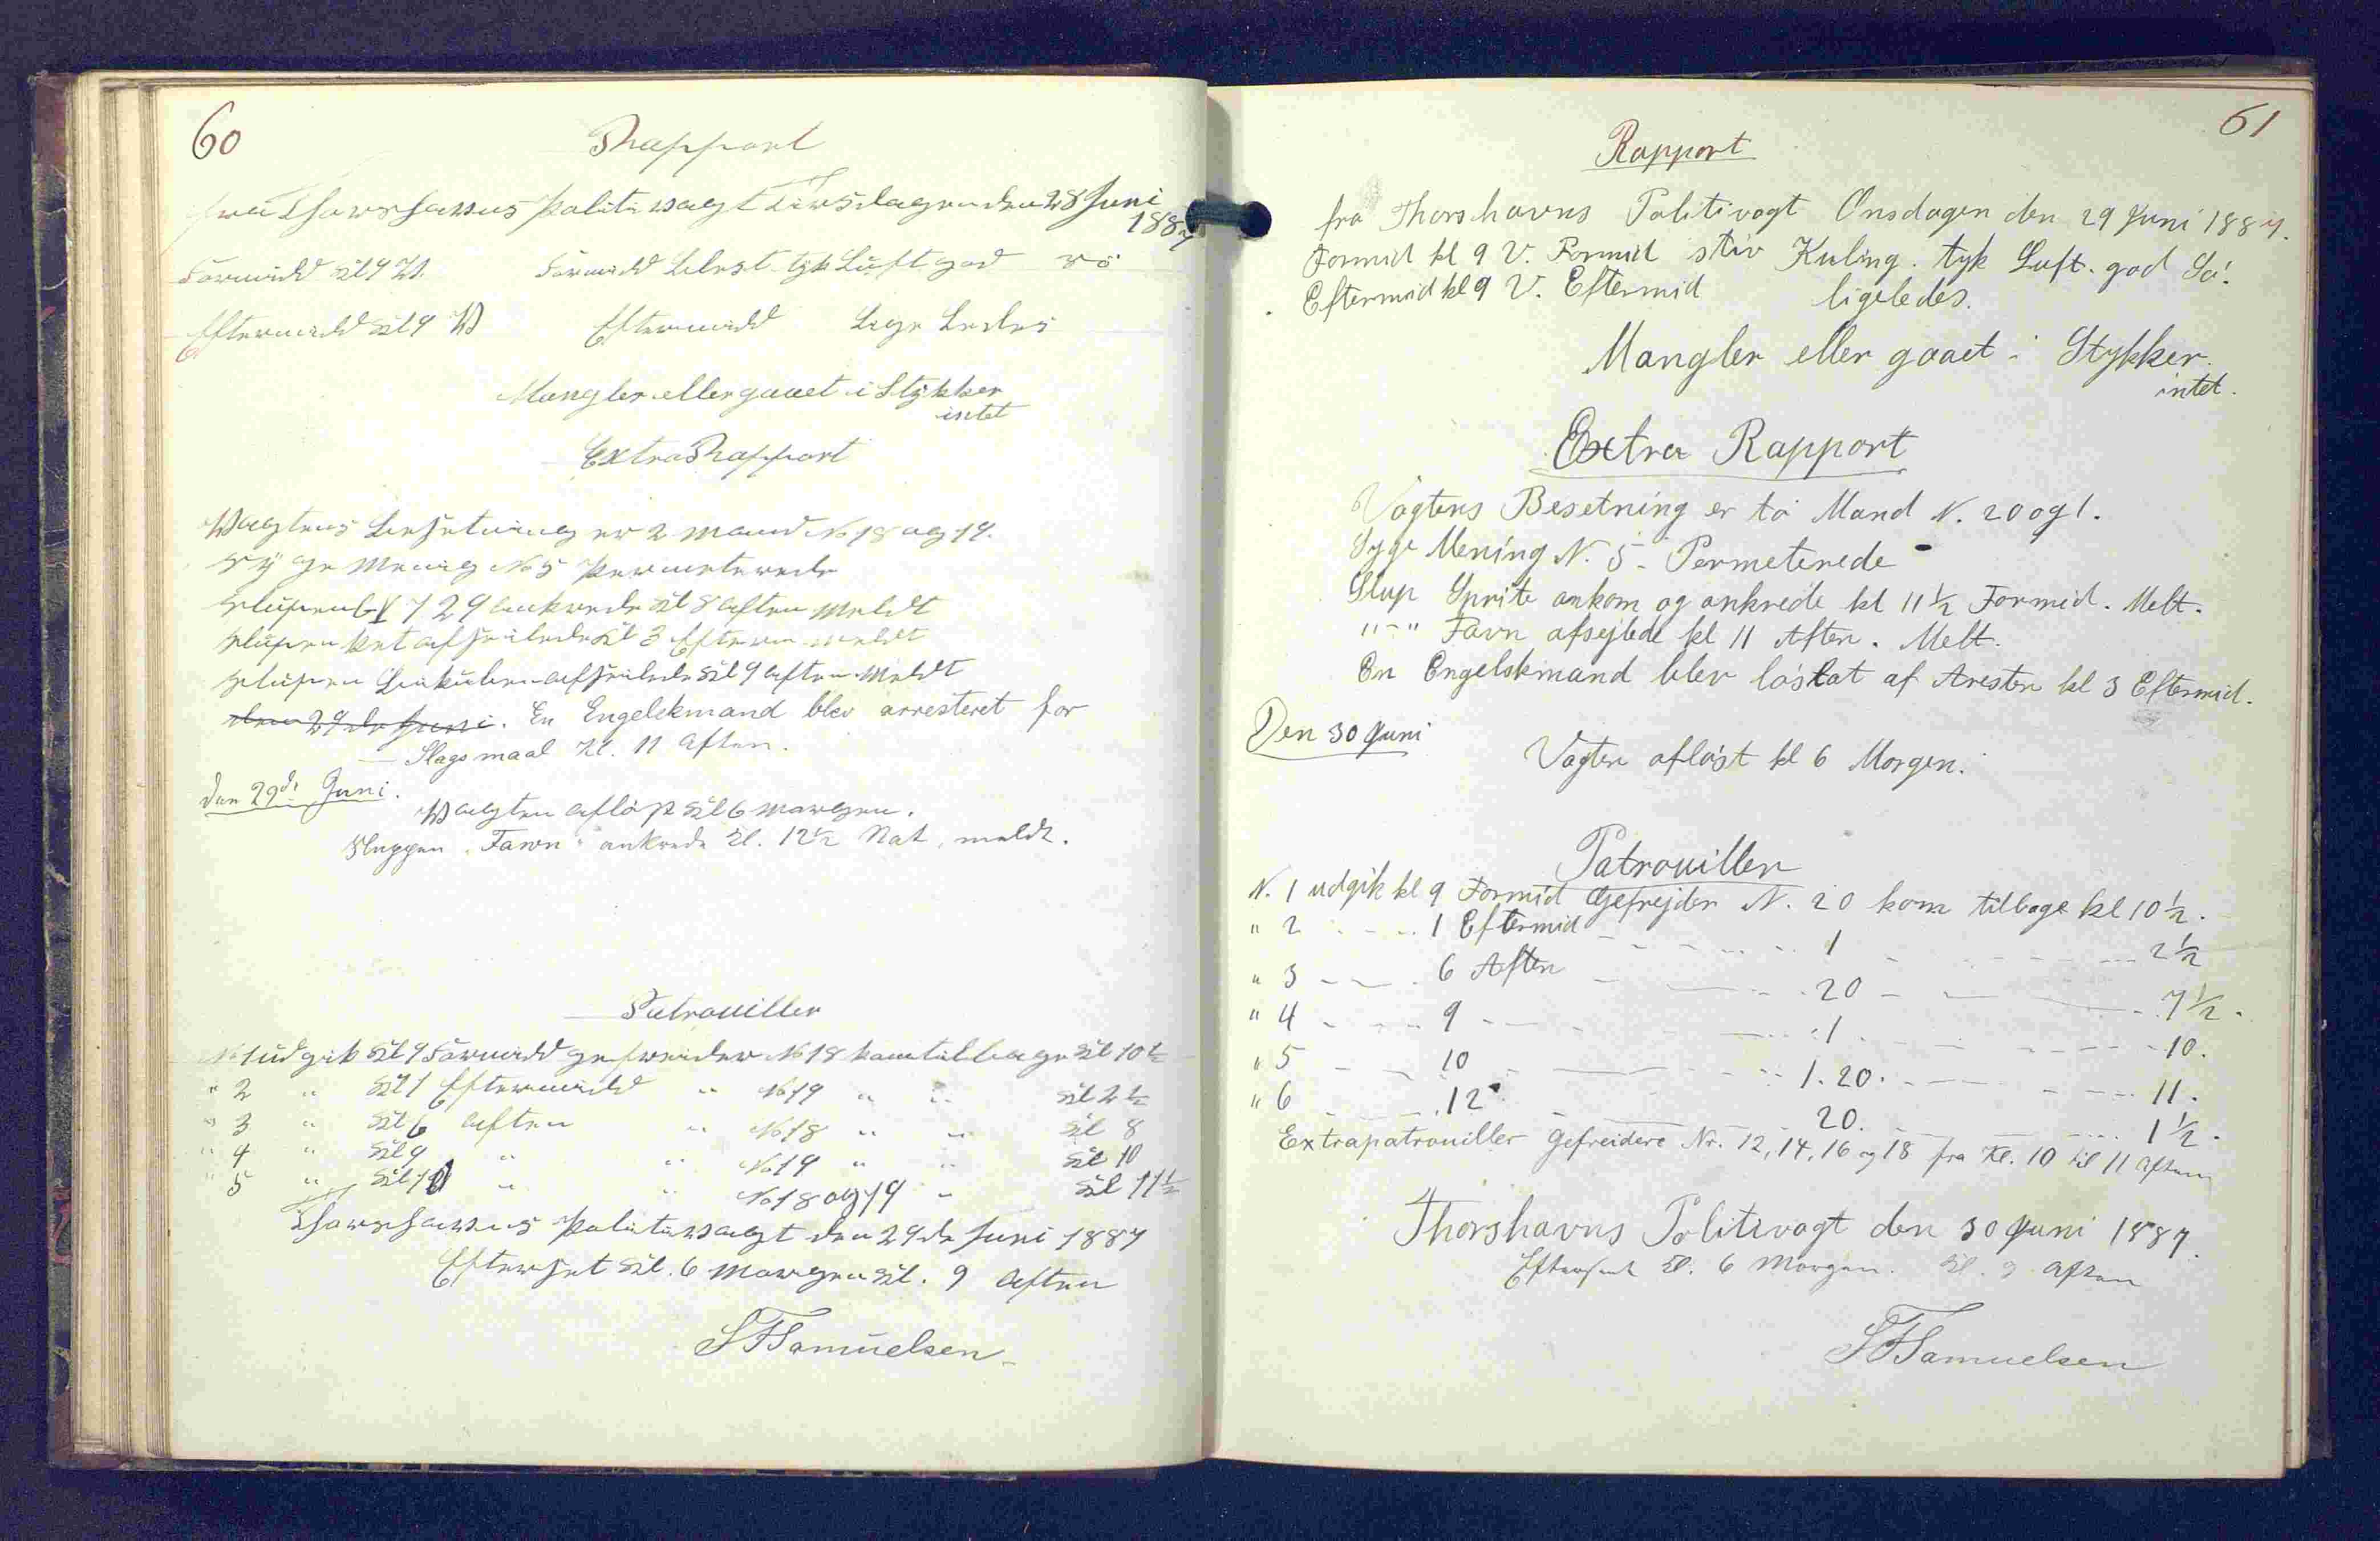 60
Rapport
fra Thorshavns Politivagt Tirsdagen den 28 Juni
1887
Formidd Kl 9 V. Formidd Blest tyk Luft god Sö
Eftermidd Kl 9 V Eftermidd Lige Ledes
Mangler eller gaaet i Stykker
intet
Extra Rapport
Vagtens besetning er 2 mand No 18 og 19.
Syge Menig No 5 Permeterede
Slupen 729 ankrede Kl 8 aften Meldt
Slupen afseilede Kl 3 Efterm meldt
Slupen afseilede Kl 9 aften Meldt
den 29de Juni. En Engelskmand blev arresteret for
Slagsmaal Kl. 11 Aften.
den 29de Juni.
Vagten aflöst Kl 6 Morgen.
Sluppen "Fawn" ankrede Kl. 12½ Nat, meldt.
Patrouiller
No 1 udgik Kl 9 Formidd gefreider No 18 kom tilbage Kl 10½
" 2 " Kl 1 Eftermidd " No 19 " " Kl 2½
" 3 " Kl 6 Aften " No 18 " " Kl 8
" 4 " Kl 9 " " No 19 " " Kl 10
" 5 " Kl 10 " " No 18 og 19 " Kl 11½
Thorshavns Politivagt den 29de Juni 1887
Efterset Kl. 6 Morgen Kl. 9 Aften
SFSamuelsen
61
Rapport
fra Thorshavns Politivagt Onsdagen den 29 Juni 1887.
Formid kl 9 V. Formid stiv Kuling. tyk Luft. god Sö.
Eftermid kl 9 V. Eftermid ligeledes.
Mangler eller gaaet i Stykker.
intet.
Extra Rapport
Vagtens Besetning er to Mand N. 20 og 1.
Syge Mening N. 5 - Permeterede -
Slup Sprite ankom og ankrede kl 11½ Formid. Melt.
" - " Favn afsejlede kl 11 Aften. Melt.
En Engelskmand blev löslat af Aresten kl 3 Eftermid.
Den 30 Juni
Vagten aflöst kl 6 Morgen.
Patrouiller
N. 1 udgik kl 9 Formid Gefrejder N. 20 kom tilbage kl 10½.
" 2 - - - 1 Eftermid - - - 1 - - - 2½
" 3 - - - 6 Aften - - - 20 - - - 7½.
" 4 - - - 9 - - - 1 - - - 10.
" 5 - - - 10 - - - 1. 20. - - - 11.
" 6 - - - 12 - - - 20. - - - 1½.
Extrapatrouiller Gefreidere Nr. 12, 14, 16 og 18 fra Kl. 10 til 11 Aften
Thorshavns Politivagt den 30 Juni 1887.
Efterset Kl. 6 Morgen. Kl. 9 Aften
SFSamuelsen